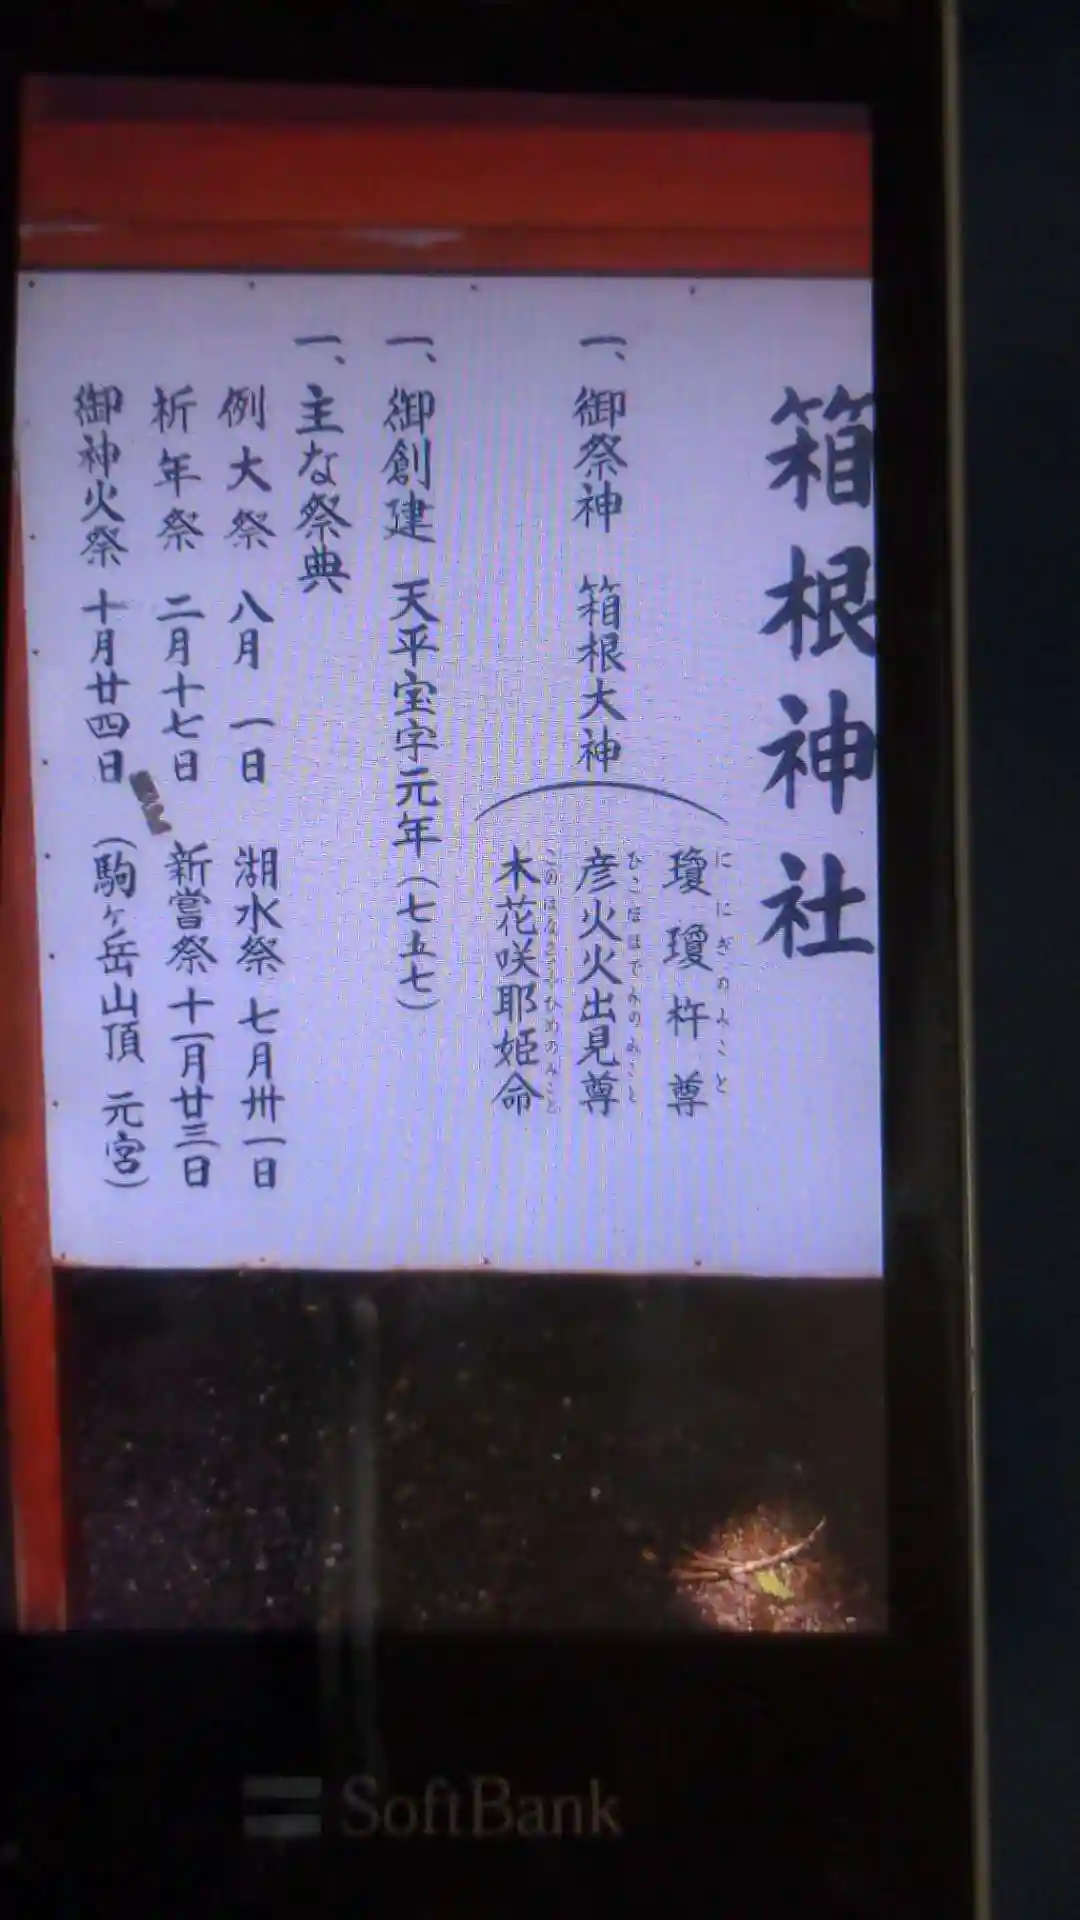 箱根神社
一、御祭神 箱根大神
瓊瓊杵尊
ににぎのみこと
彦火火出見尊
ひこほほでみのみこと
木花咲耶姫命
このはなさくやひめのみこと
一、御創建 天平宝字元年（七五七）
一、主な祭典
例大祭 八月 一日 湖水祭 七月卅一日
祈年祭 二月十七日 新嘗祭 十一月廿三日
御神火祭 十月廿四日 （駒ヶ岳山頂 元宮）
SoftBank